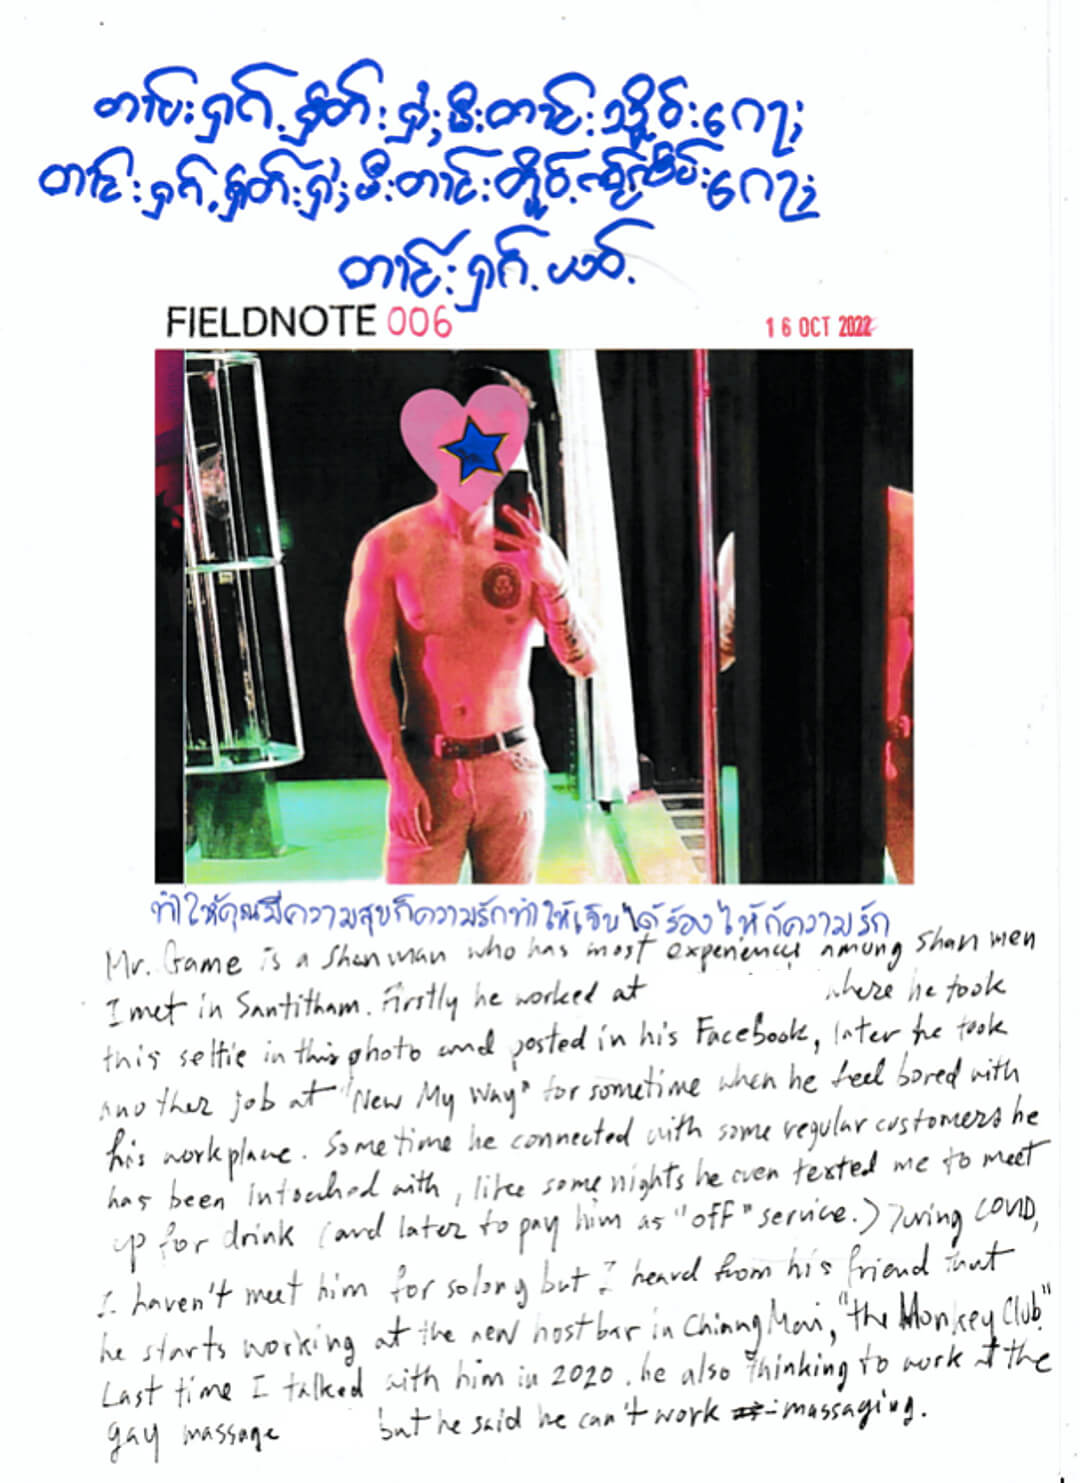 တၢင်းႁၵ်ႉႁဵတ်းႁႂ်ႈမီးတၢင်းသိူဝ်းၵေႃႈ
တၢင်းႁၵ်ႉႁဵတ်းႁႂ်ႈမီးတၢင်း ၵေႃႈ
တၢင်းႁၵ်ႉယဝ်ႉ
FIELDNOTE 006
16 OCT 2022
ทำให้คุณมีความสุขก็ความรักทำให้เจ็บได้ร้องไห้ก็ความรัก
Mr. Game is a Shan man who has most experiences among Shan men
I met in Santitham. Firstly he worked at where he took
this selfie in this photo and posted in his Facebook, later he took
another job at "New My Way" for sometime when he feel bored with
his workplace. Sometime he connected with some regular customers he
has been intouched with, like some nights he even texted me to meet
up for drink (and later to pay him as "off" service.) During COVID,
I haven't meet him for solong but I heard from his friend that
he starts working at the new host bar in Chiang Mai, "the Monkey Club."
Last time I talked with him in 2020. he also thinking to work at the
gay massage but he said he can't work massaging.